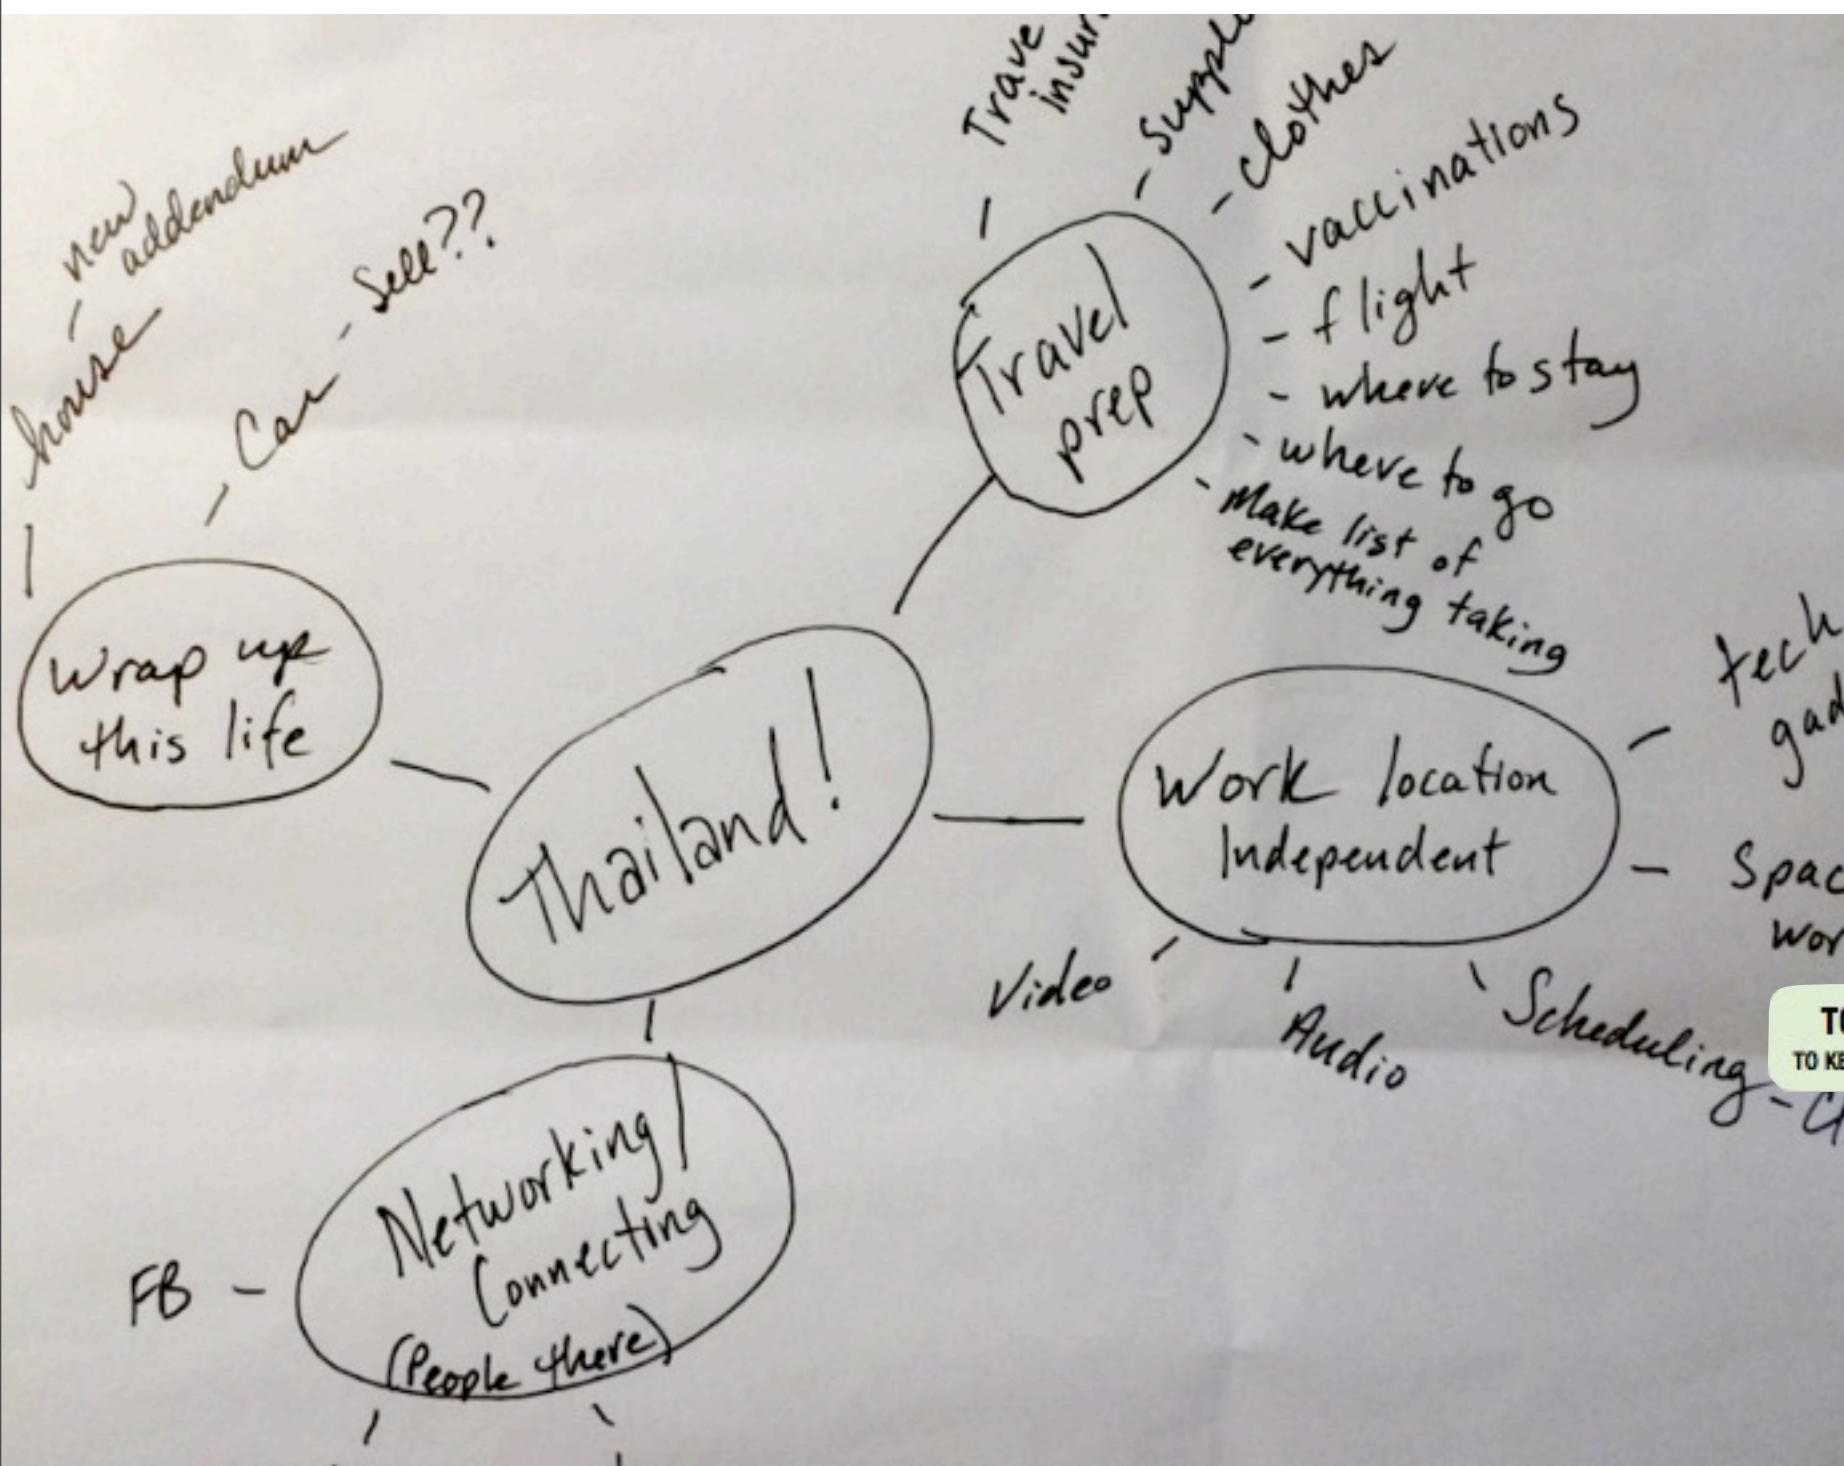 new
addendum
house
Car - Sell??
Wrap up
this life
Thailand!
Travel
prep
- clothes
- vaccinations
- flight
- where to stay
- where to go
- Make list of
everything taking
Work location
Independent
tech
Video
Audio
Scheduling -
Networking/
Connecting
(People there)
FB -